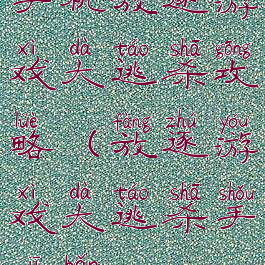 手机放逐游
xì dà táo shā gōng
戏大逃杀攻
lüè fàng zhú yóu
略（放逐游
xì dà táo shā shǒu
戏大逃杀手